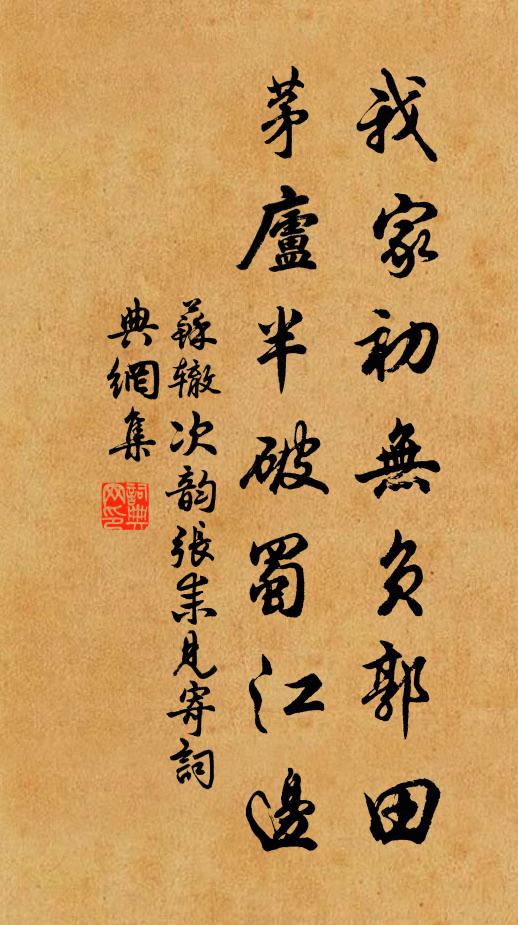 我家初無負郭田
茅廬半破蜀江邊
蘇辙次韵張耒見寄詞
典網集
詞典
网印